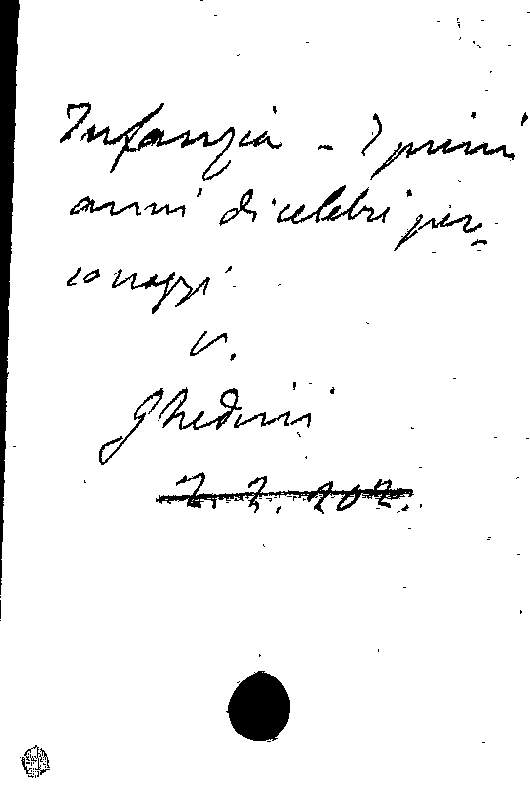 Infanzia - I primi
anni di celebri per-
sonaggi
v.
Ghedini
2. 2. 202.